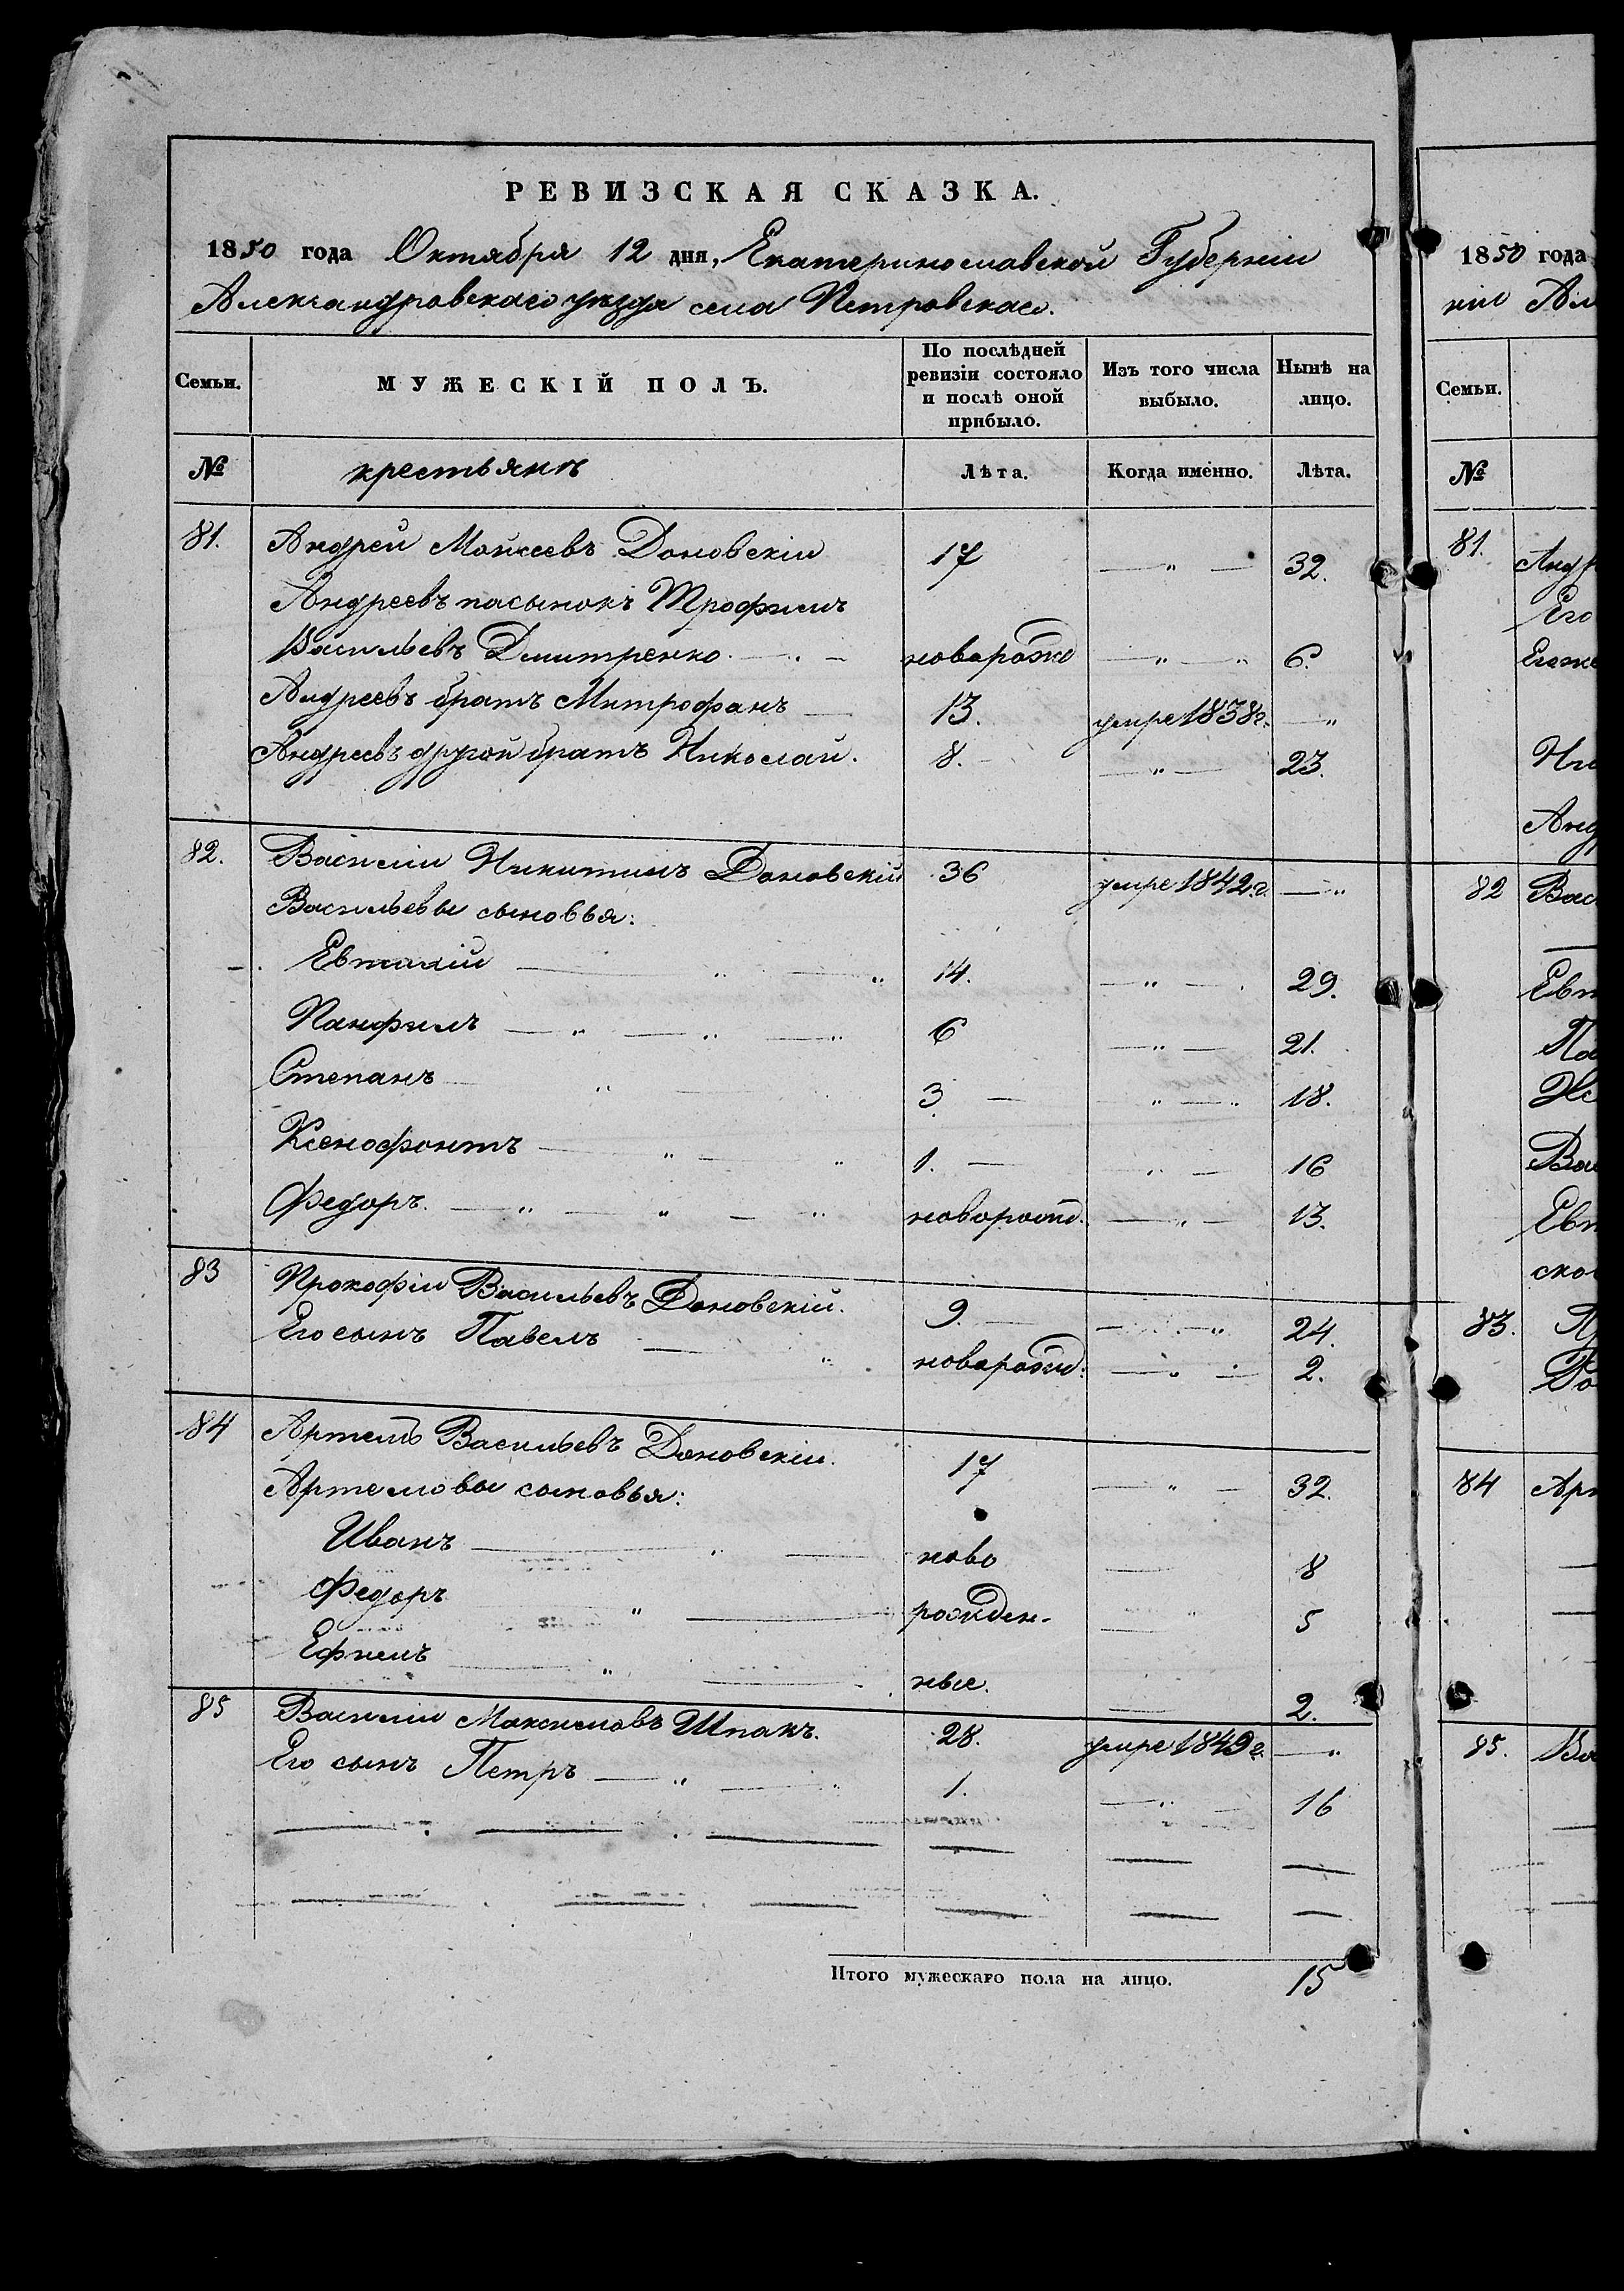 РЕВИЗСКАЯ СКАЗКА.
1850 года Октября 12 дня, Екатеринославской Губерніи
Александровскаго уѣзда села Петровскаго.
Семьи. МУЖЕСКІЙ ПОЛЪ. По послѣдней ревизіи состояло и послѣ оной прибыло. Изъ того числа выбыло. Нынѣ на лицо.
№ крестьянъ Лѣта. Когда именно. Лѣта.
81. Андрей Мойсеевъ Доновскій 17 — " — 32.
Андреевъ пасынокъ Трофимъ
Васильевъ Дмитренко новорожд — " — " 6.
Андреевъ братъ Митрофанъ — 13. умре 1838г. — "
Андреевъ другой братъ Николай. 8. — " — 23.
82. Василій Никитинъ Доновскій 36 умре 1842г. — "
Васильевы сыновья:
Евтихій 14. — " — 29.
Панфилъ 6 — " — 21.
Степанъ 3 — " — " 18.
Ксенофонтъ 1. — " — 16
Федоръ. новорожд. — " — 13.
83 Прокофій Васильевъ Доновскій. 9 — " 24.
Его сынъ Павелъ новорожд: — " — 2.
84 Артемъ Васильевъ Доновскій. 17 — " — 32.
Артемовы сыновья:
Иванъ ново 8
Федоръ рожден- 5
Ефимъ ные. 2.
85 Василій Максимовъ Шпакъ. 28. умре 1849г. — "
Его сынъ Петръ 1. — " — 16
Итого мужескаго пола на лицо. 15
1850 года
ніи Ал
Семьи.
№
81. Андр
Его
Егоже
Ни
Анд
82 Вас
Евт
Па
Вас
Евт
ско
83. П
84 Арт
85. Ва